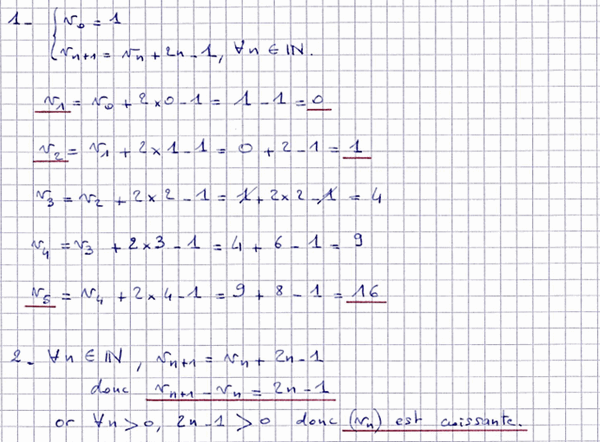 1- { v₀ = 1
v_{n+1} = v_n + 2n - 1, ∀n ∈ IN.
v₁ = v₀ + 2×0 - 1 = 1 - 1 = 0
v₂ = v₁ + 2×1 - 1 = 0 + 2 - 1 = 1
v₃ = v₂ + 2×2 - 1 = 1 + 2×2 - 1 = 4
v₄ = v₃ + 2×3 - 1 = 4 + 6 - 1 = 9
v₅ = v₄ + 2×4 - 1 = 9 + 8 - 1 = 16
2- ∀n ∈ IN, v_{n+1} = v_n + 2n - 1
donc v_{n+1} - v_n = 2n - 1
or ∀n > 0, 2n - 1 > 0 donc (v_n) est croissante.